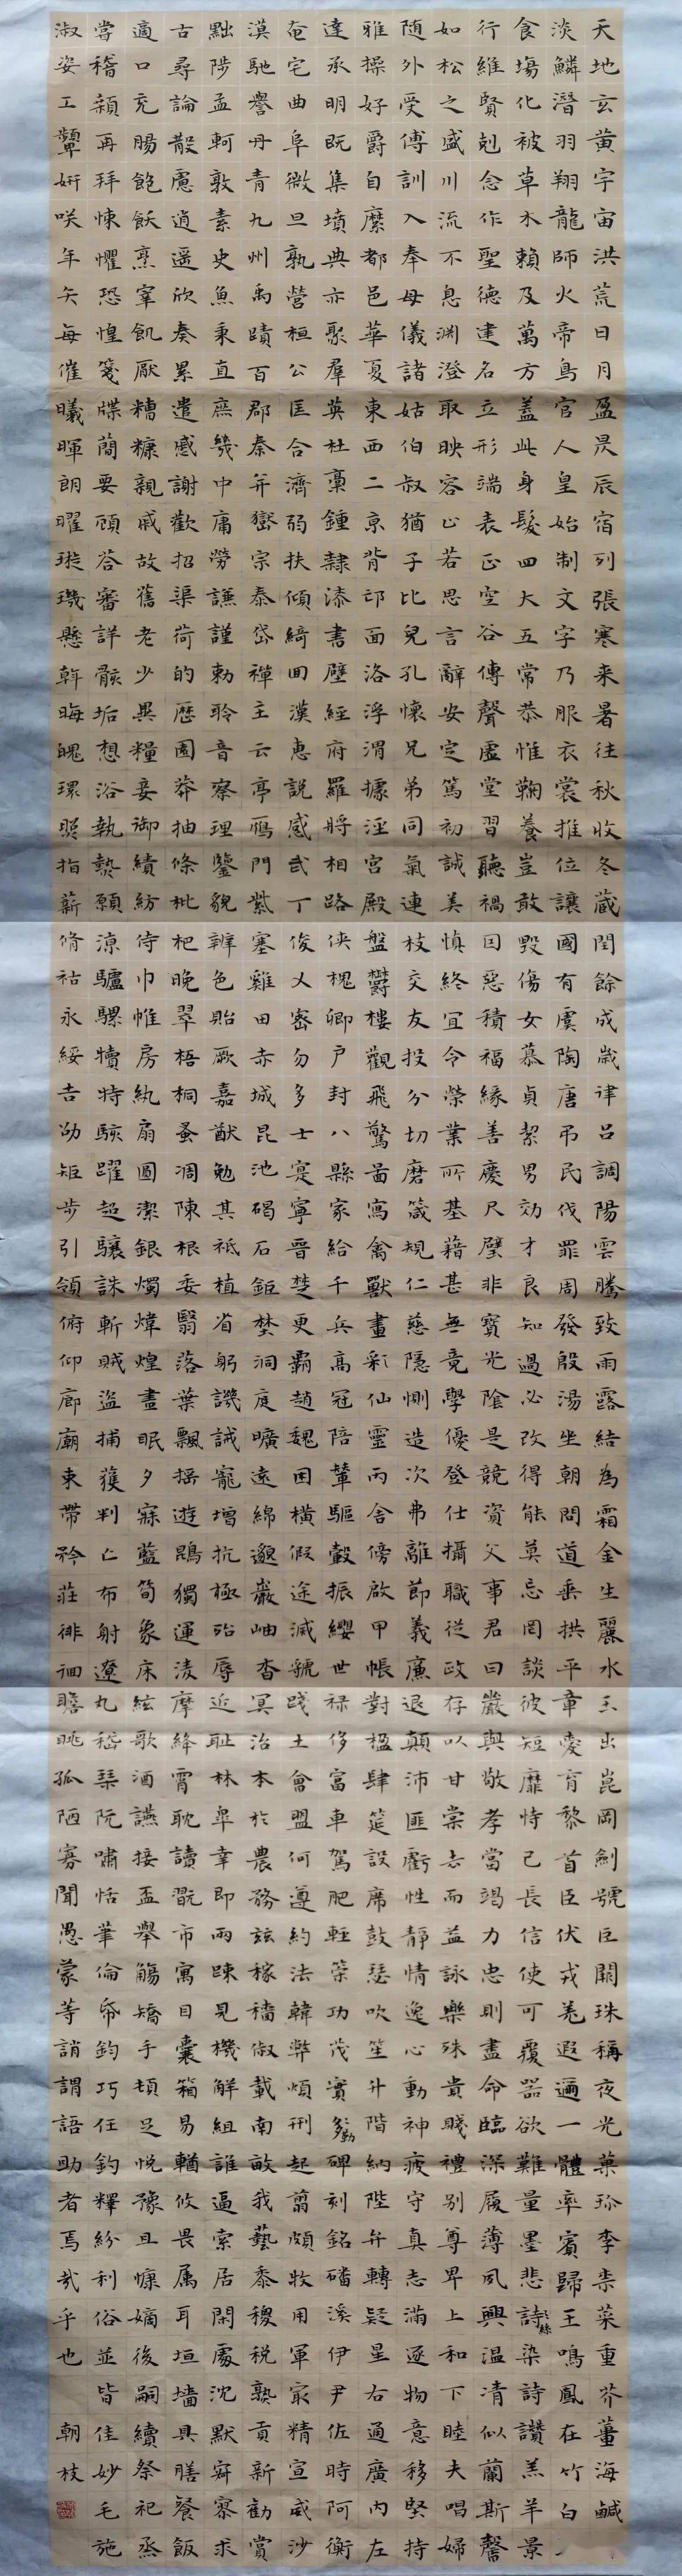 天地玄黃宇宙洪荒日月盈昃辰宿列張寒来暑往秋收冬藏閏餘成歲律呂調陽雲騰致雨露結為霜金生麗水玉出崑岡劍號巨闕珠稱夜光菓珍李柰菜重芥薑海鹹
淡鱗潛羽翔龍師火帝鳥官人皇始制文字乃服衣裳推位讓國有虞陶唐弔民伐罪周發殷湯坐朝問道垂拱平章愛育黎首臣伏戎羌遐邇一體率賓歸王鳴鳳在竹白
食場化被草木賴及萬方蓋此身髮四大五常恭惟鞠養豈敢毀傷女慕貞絜男効才良知過必改得能莫忘罔談彼短靡恃己長信使可覆器欲難量墨悲詩絲染詩讚羔羊景
行維賢剋念作聖德建名立形端表正空谷傳聲虛堂習聽禍因惡積福緣善慶尺璧非寶光陰是競資父事君曰嚴與敬孝當竭力忠則盡命臨深履薄夙興温凊似蘭斯馨
如松之盛川流不息淵澄取映容止若思言辭安定篤初誠美慎終宜令榮業所基藉甚無竟學優登仕攝職從政存以甘棠去而益詠樂殊貴賤禮别尊卑上和下睦夫唱婦
随外受傅訓入奉母儀諸姑伯叔猶子比兒孔懷兄弟同氣連枝交友投分切磨箴規仁慈隱惻造次弗離節義廉退顛沛匪虧性静情逸心動神疲守真志滿逐物意移堅持
雅操好爵自縻都邑華夏東西二京背邙面洛浮渭據涇宮殿盤鬱樓觀飛驚啚寫禽獸畫彩仙靈丙舍傍啟甲帳對楹肆筵設席鼓瑟吹笙升階納陛弁轉疑星右通廣内左
達承明既集墳典亦聚羣英杜稾鍾隸漆書壁經府羅將相路俠槐卿户封八縣家給千兵高冠陪輦驅轂振纓世禄侈富車駕肥輕策功茂實勒碑刻銘磻溪伊尹佐時阿衡
奄宅曲阜微旦孰營桓公匡合濟弱扶傾綺回漢惠說感武丁俊乂密勿多士寔寧晉楚更霸趙魏困橫假途滅虢踐土會盟何遵約法韓弊煩刑起翦頗牧用軍最精宣威沙
漠馳譽丹青九州禹蹟百郡秦并嶽宗泰岱禪主云亭鴈門紫塞雞田赤城昆池碣石鉅埜洞庭曠遠綿邈巖岫杳冥治本於農務兹稼穡俶載南畝我藝黍稷税熟貢新勸賞
黜陟孟軻敦素史魚秉直庶幾中庸勞謙謹勅聆音察理鑒貌辨色貽厥嘉猷勉其祗植省躬譏誡寵增抗極殆辱近耻林皋幸即兩疎見機解組誰逼索居閑處沈默寂寥求
古尋論散慮逍遥欣奏累遣慼謝歡招渠荷的歷園莽抽條枇杷晚翠梧桐蚤凋陳根委翳落葉飄摇遊鵾獨運凌摩絳霄耽讀翫市寓目囊箱易輶攸畏属耳垣墻具膳飡飯
適口充腸飽飫烹宰飢厭糟糠親戚故舊老少異糧妾御績紡侍巾帷房紈扇圓潔銀燭煒煌晝眠夕寐藍筍象床絃歌酒讌接盃舉觴矯手頓足悅豫且慷嫡後嗣續祭祀烝
嘗稽顙再拜悚懼恐惶箋牒簡要顧答審詳骸垢想浴執熱願涼驢騾犢特駭躍超驤誅斬賊盜捕獲判亡布射遼丸嵇琴阮嘯恬筆倫帋鈞巧任釣釋紛利俗並皆佳妙毛施
淑姿工顰妍咲年矢每催曦暉朗曜璇璣懸斡晦魄環照指薪脩祜永綏吉劭矩步引領俯仰廊廟束帶矜莊徘徊瞻眺孤陋寡聞愚蒙等誚謂語助者焉哉乎也 朝枝